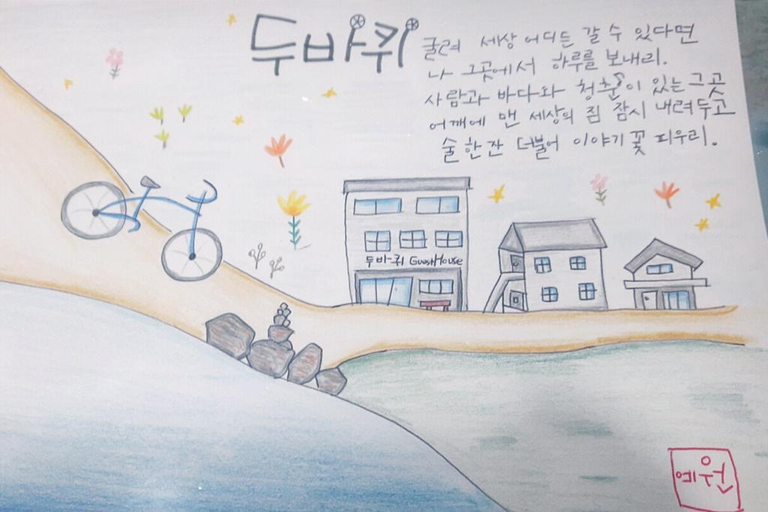 두바퀴
굴려 세상 어디든 갈 수 있다면
나 그곳에서 하루를 보내리.
사람과 바다와 청춘이 있는 그곳
어깨에 맨 세상의 짐 잠시 내려두고
술 한잔 더불어 이야기 꽃 피우리.
두바퀴 GuestHouse
예원